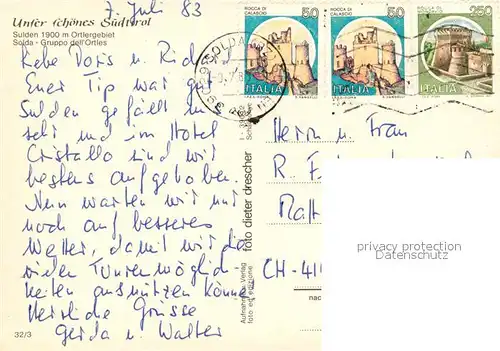 7. Juli 83
Unser schönes Südtirol
Sulden 1900 m Ortlergebiet
Solda - Gruppo dell'Ortles
Liebe Doris u. Rid
Euer Tip war gut
Sulden gefällt uns
sehr und im Hotel
Cristallo sind wir
bestens aufgehoben.
Nun warten wir nur
noch auf besseres
Wetter, damit wir die
vielen Tourenmöglich-
keiten ausnützen können
Herzliche Grüsse
Gerda u. Walter
32/3
ROCCA DI CALASCIO
50
ITALIA
ROCCA DI CALASCIO
50
ITALIA
250
ITALIA
SOLDA
foto dieter drescher
Aufnahme u. Verlag
foto ed edizione
Herrn u. Frau
R. F
Matt
CH-41
privacy protection
www.oldthing.de